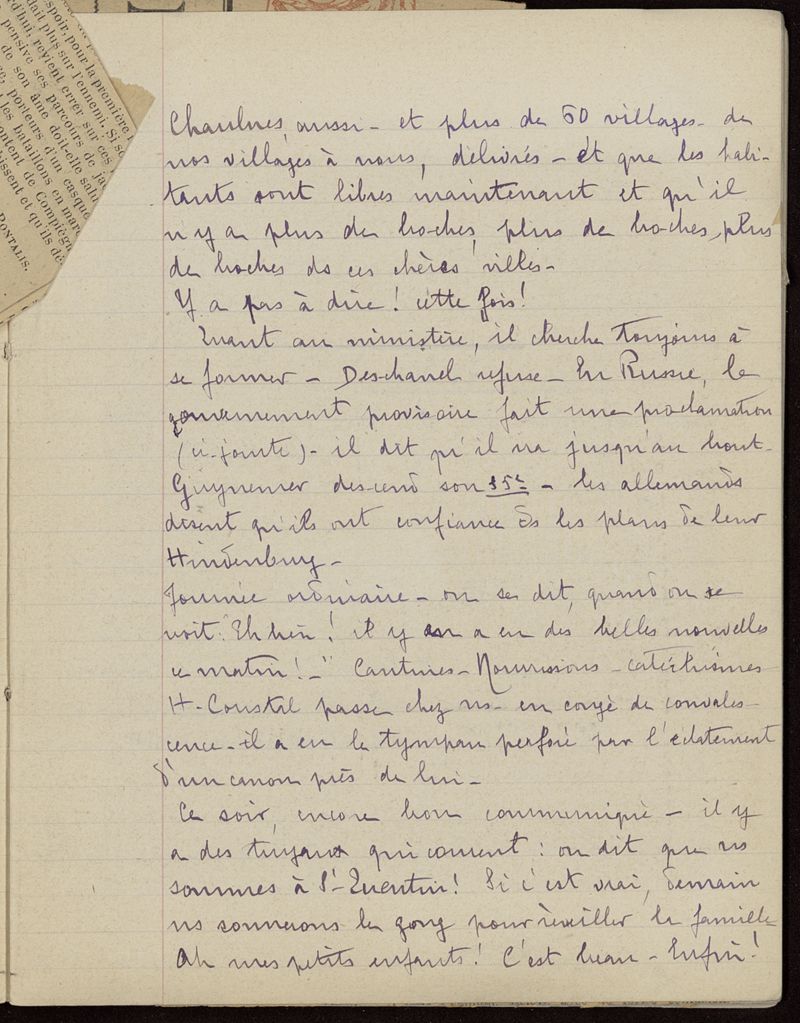 spoir, pour la première
dait plus sur l'ennemi. Si s
d'hui, revient errer sur ces
pensive ses parcours de ja
de son âme doit-elle salu
e, porteurs d'un casque
les bataillons en marc
ontent de Compiègn
issent et qu'ils dé
PONTALIS.
Chaulnes, aussi - et plus de 60 villages - de
nos villages à nous, délivrés - et que les habi-
tants sont libres maintenant et qu'il
n'y a plus de boches, plus de boches, plus
de boches ds ces chères villes -
Y a pas à dire ! cette fois !
Quant au ministère, il cherche toujours à
se former - Deschanel refuse - En Russie, le
gouvernement provisoire fait une proclamation
(ci-jointe) - il dit qu'il ira jusqu'au bout -
Guynemer descend son 35e - les allemands
disent qu'ils ont confiance ds les plans de leur
Hindenburg -
Journée ordinaire - on se dit, quand on se
voit : "Eh bien ! il y en a eu des belles nouvelles
ce matin ! -" Cantines - Nourrissons - catéchismes
H. Coustal passe chez ns - en congé de convales-
cence - il a eu le tympan perforé par l'éclatement
d'un canon près de lui -
Ce soir, encore bon communiqué - il y
a des tuyaux qui courent : on dit que ns
sommes à St-Quentin ! Si c'est vrai, demain
ns sonnerons le gong pour réveiller la famille
Ah mes petits enfants ! C'est beau - Enfin !